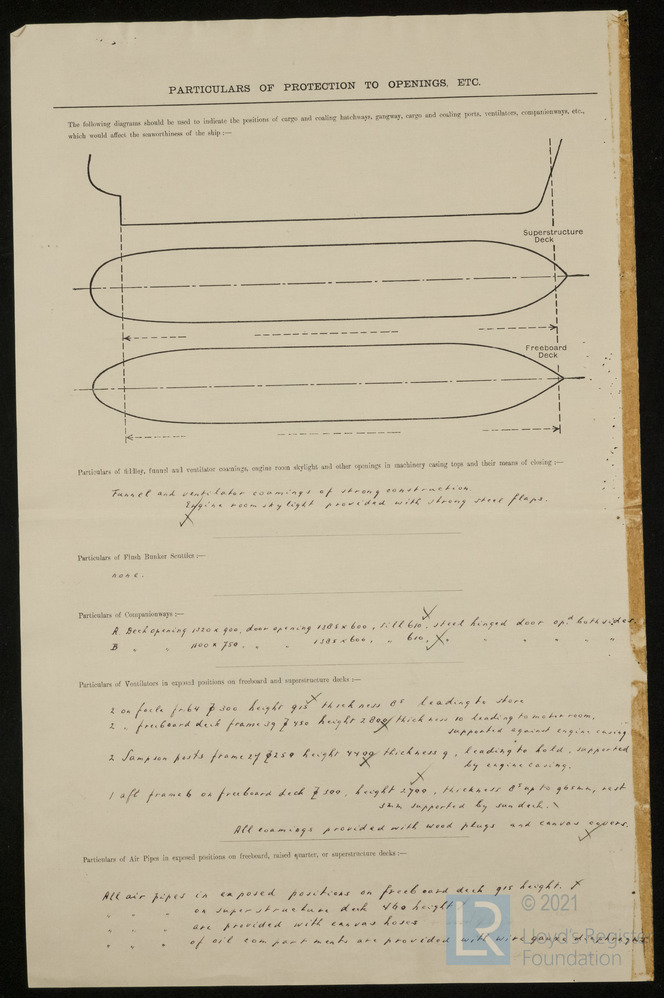 PARTICULARS OF PROTECTION TO OPENINGS, ETC.
The following diagrams should be used to indicate the positions of cargo and coaling hatchways, gangway, cargo and coaling ports, ventilators, companionways, etc.,
which would affect the seaworthiness of the ship :—
Superstructure
Deck
Freeboard
Deck
Particulars of fiddley, funnel and ventilator coamings, engine room skylight and other openings in machinery casing tops and their means of closing :—
Funnel and ventilator coamings of strong construction.
Engine room skylight provided with strong steel flaps.
Particulars of Flush Bunker Scuttles :—
none.
Particulars of Companionways :—
A Deck opening 1320 x 900, door opening 1385 x 600, sill 610, steel hinged door op. both sides.
B " " 1100 x 750, " " 1385 x 600, " 610, " " " " "
Particulars of Ventilators in exposed positions on freeboard and superstructure decks :—
2 on focle fr. 64 ø 300 height 915 thickness 8⁵ leading to store
2 " freeboard deck frame 29 ø 450 height 2800 thickness 10 leading to motor room,
supported against engine casing
2 Sampson posts frame 27 ø 250 height 4400 thickness 9, leading to hold, supported
by engine casing.
1 aft frame 6 on freeboard deck ø 300, height 2700, thickness 8⁵ up to 965mm, rest
5mm supported by sundeck.
All coamings provided with wood plugs and canvas covers.
Particulars of Air Pipes in exposed positions on freeboard, raised quarter, or superstructure decks :—
All air pipes in exposed positions on freeboard deck 915 height.
" " " on superstructure deck 460 height
" " " are provided with canvas hoses
" " " of oil compartments are provided with wire gauze diaphragms
LR
© 2021
Lloyd's Register
Foundation